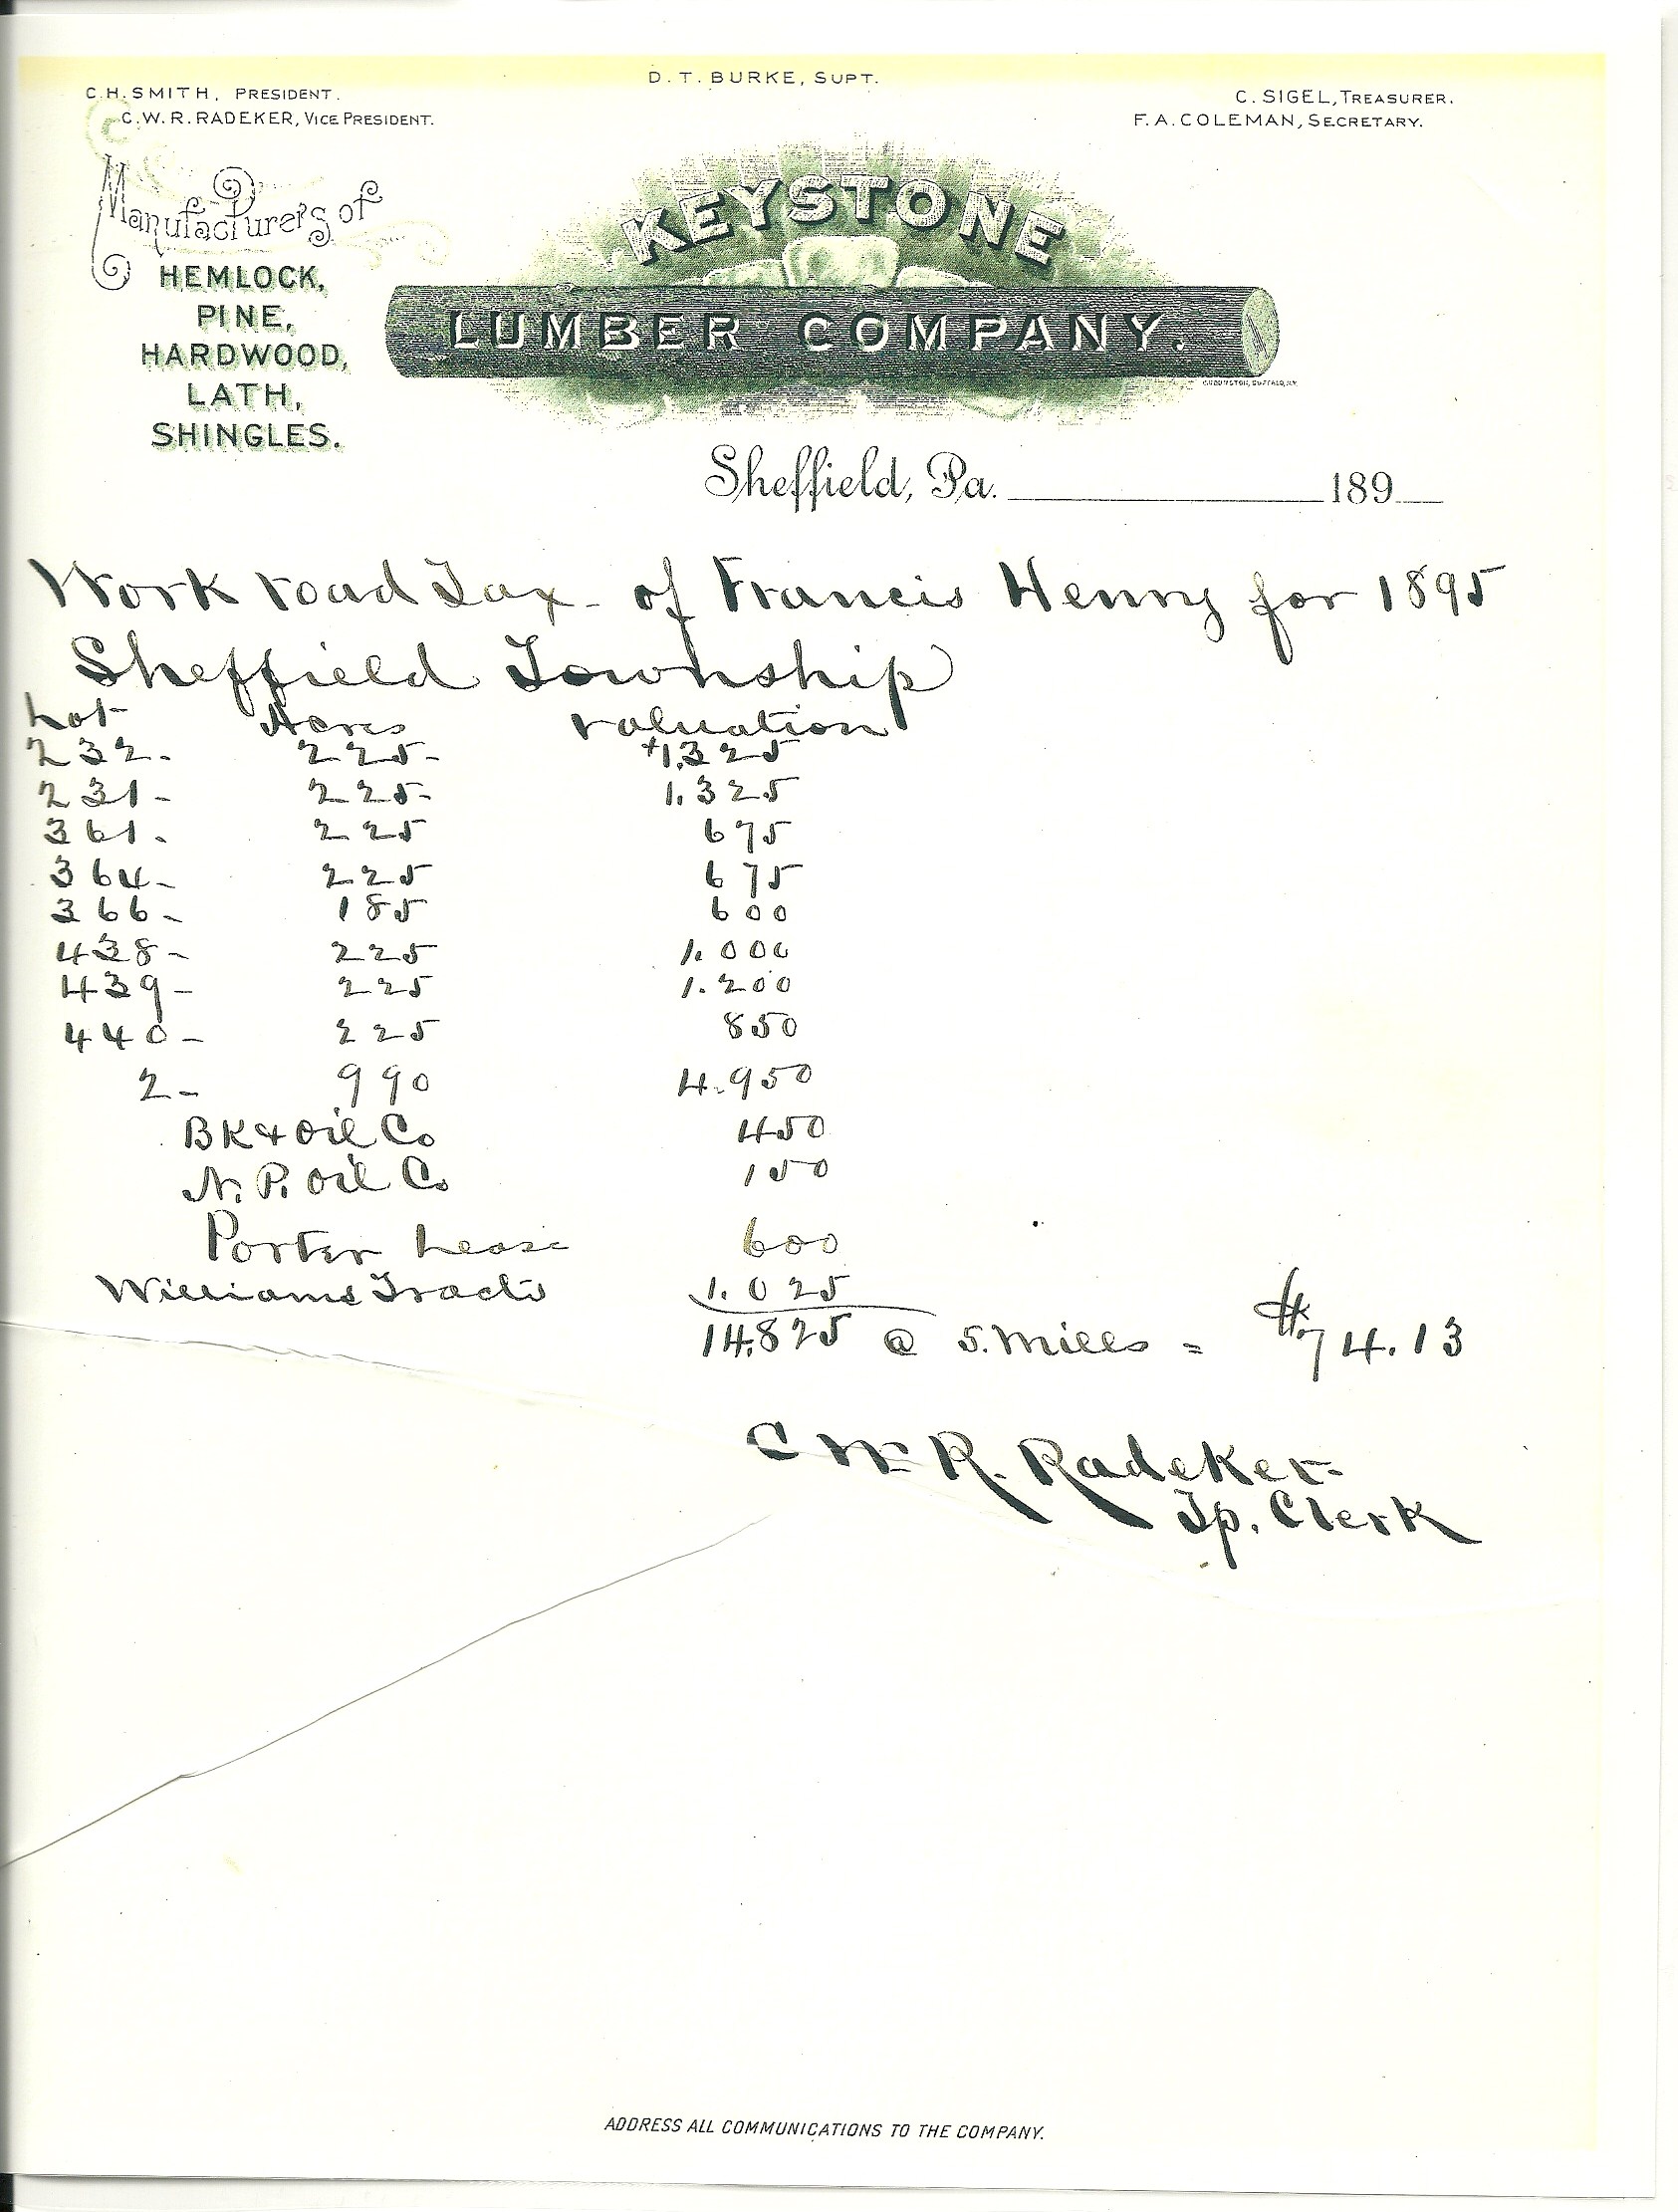 D. T. BURKE, SUPT.
C. H. SMITH, PRESIDENT.
C. W. R. RADEKER, VICE PRESIDENT.
C. SIGEL, TREASURER.
F. A. COLEMAN, SECRETARY.
Manufacturers of
HEMLOCK,
PINE,
HARDWOOD,
LATH,
SHINGLES.
KEYSTONE
LUMBER COMPANY.
Sheffield, Pa. 189
Work road Tax - of Francis Henry for 1895
Sheffield Township
Lot Acres valuation
232- 225- $1,325
231- 225- 1.325
361- 225 675
364- 225 675
366- 185 600
438- 225 1.000
439- 225 1.200
440- 225 850
2- 990 4.950
BK & Oil Co 450
N. P. Oil Co 150
Porter Lease 600
Williams Tracts 1.025
14.825 @ 5. Mills = $74.13
C Wm R. Radeker
Tp. Clerk
ADDRESS ALL COMMUNICATIONS TO THE COMPANY.